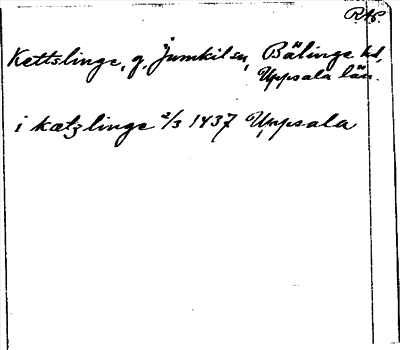 RAP.
Kettslinge, g, Jumkil sn, Bälinge hd,
Uppsala län.
i kætzlinge 2/3 1437 Uppsala